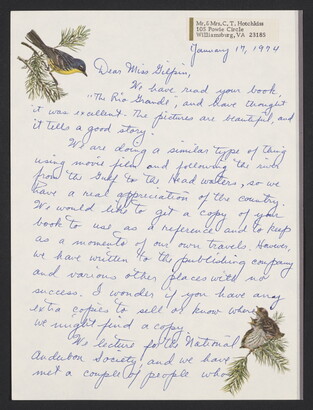 Mr. & Mrs. C. T. Hotchkiss
105 Powle Circle
Williamsburg, VA 23185
January 17, 1974
Dear Miss Gilpin,
We have read your book
"The Rio Grande", and have thought
it was excellent. The pictures are beautiful, and
it tells a good story.
We are doing a similar type of thing
using movie film and following the river
from the Gulf to the Head waters, so we
have a real appreciation of the country.
We would like to get a copy of your
book to use as a reference and to keep
as a momento of our own travels. However,
we have written to the publishing company
and various other places with no
success. I wonder if you have any
extra copies to sell or know where
we might find a copy.
We lecture for the National
Audubon Society, and we have
met a couple of people who